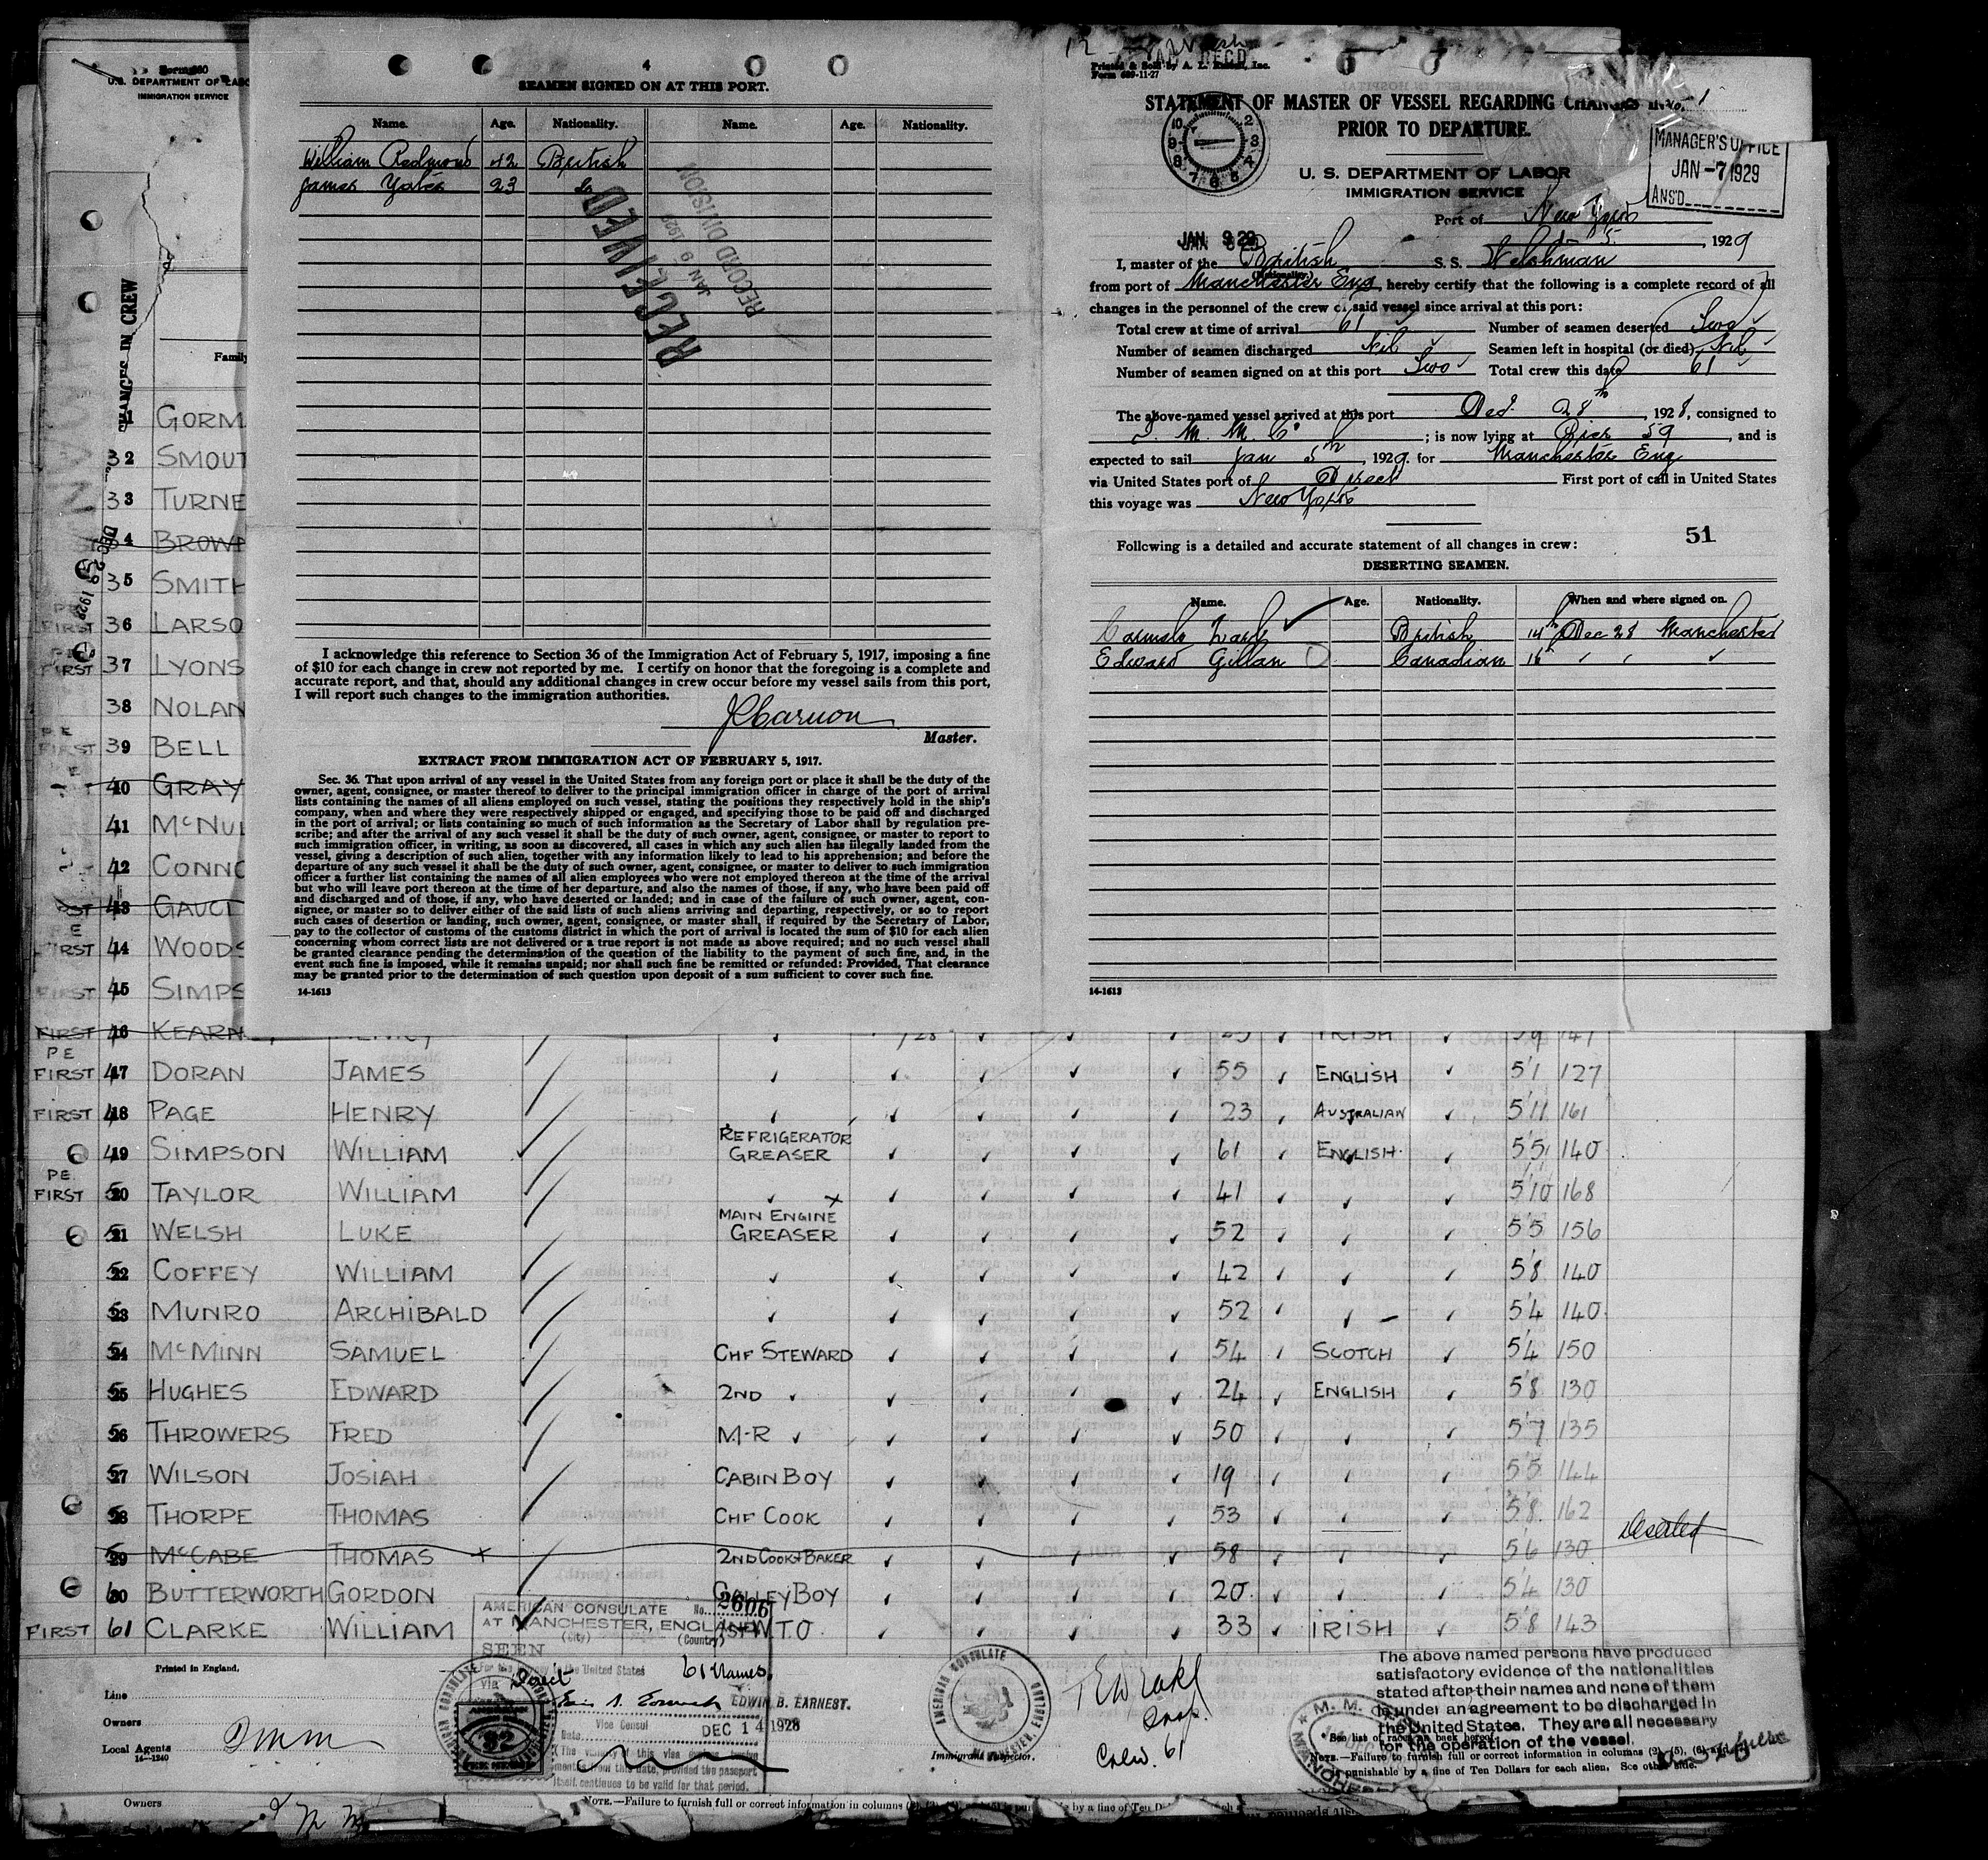 4
SEAMEN SIGNED ON AT THIS PORT.
Name. Age. Nationality. Name. Age. Nationality.
William Redmond 42 British
James Yates 23 Do
RECEIVED
JAN 9 1929
RECORD DIVISION
I acknowledge this reference to Section 36 of the Immigration Act of February 5, 1917, imposing a fine
of $10 for each change in crew not reported by me. I certify on honor that the foregoing is a complete and
accurate report, and that, should any additional changes in crew occur before my vessel sails from this port,
I will report such changes to the immigration authorities.
Master.
EXTRACT FROM IMMIGRATION ACT OF FEBRUARY 5, 1917.
Sec. 36. That upon arrival of any vessel in the United States from any foreign port or place it shall be the duty of the
owner, agent, consignee, or master thereof to deliver to the principal immigration officer in charge of the port of arrival
lists containing the names of all aliens employed on such vessel, stating the positions they respectively hold in the ship's
company, when and where they were respectively shipped or engaged, and specifying those to be paid off and discharged
in the port of arrival; or lists containing so much of such information as the Secretary of Labor shall by regulation pre-
scribe; and after the arrival of any such vessel it shall be the duty of such owner, agent, consignee, or master to report to
such immigration officer, in writing, as soon as discovered, all cases in which any such alien has illegally landed from the
vessel, giving a description of such alien, together with any information likely to lead to his apprehension; and before the
departure of any such vessel it shall be the duty of such owner, agent, consignee, or master to deliver to such immigration
officer a further list containing the names of all alien employees who were not employed thereon at the time of the arrival
but who will leave port thereon at the time of her departure, and also the names of those, if any, who have been paid off
and discharged and of those, if any, who have deserted or landed; and in case of the failure of such owner, agent, con-
signee, or master so to deliver either of the said lists of such aliens arriving and departing, respectively, or so to report
such cases of desertion or landing, such owner, agent, consignee, or master shall, if required by the Secretary of Labor,
pay to the collector of customs of the customs district in which the port of arrival is located the sum of $10 for each alien
concerning whom correct lists are not delivered or a true report is not made as above required; and no such vessel shall
be granted clearance pending the determination of the question of the liability to the payment of such fine, and, in the
event such fine is imposed, while it remains unpaid; nor shall such fine be remitted or refunded: Provided, That clearance
may be granted prior to the determination of such question upon deposit of a sum sufficient to cover such fine.
14-1613
Printed & Sold by A. L. Inc.
Form 689-11-27
STATEMENT OF MASTER OF VESSEL REGARDING CHANGES IN
PRIOR TO DEPARTURE.
U. S. DEPARTMENT OF LABOR
IMMIGRATION SERVICE
MANAGER'S OFFICE
JAN -7 1929
ANS'D
Port of New York
5, 1929
I, master of the British S. S. Welshman
(Nationality)
from port of Manchester Eng, hereby certify that the following is a complete record of all
changes in the personnel of the crew of said vessel since arrival at this port:
Total crew at time of arrival 61 Number of seamen deserted Two
Number of seamen discharged Nil Seamen left in hospital (or died) Nil
Number of seamen signed on at this port Two Total crew this date 61
The above-named vessel arrived at this port Dec. 28th, 1928, consigned to
I. M. M. Co ; is now lying at Pier 59, and is
expected to sail Jan 5th, 1929. for Manchester Eng
via United States port of Direct First port of call in United States
this voyage was New York
51
Following is a detailed and accurate statement of all changes in crew:
DESERTING SEAMEN.
Name. Age. Nationality. When and where signed on.
British 14th Dec 28 Manchester
Edward Gillan Canadian 15
14-1613
U.S. DEPARTMENT OF LABO
IMMIGRATION SERVICE
CHANGES IN CREW
DEC 29 1928
Family
GORM
32 SMOUT
33 TURNE
34 BROWN
35 SMITH
FIRST 36 LARSO
FIRST 37 LYONS
38 NOLAN
FIRST 39 BELL
40 GRAY
41 McNUL
42 CONNO
43 GAUCI
FIRST 44 WOODS
FIRST 45 SIMPS
FIRST 46 KEARN
PE
FIRST 47 DORAN JAMES 55 ENGLISH 5'1 127
FIRST 48 PAGE HENRY 23 AUSTRALIAN 5'11 161
49 SIMPSON WILLIAM REFRIGERATOR GREASER 61 ENGLISH 5'5 140
PE
FIRST 50 TAYLOR WILLIAM 41 5'10 168
51 WELSH LUKE MAIN ENGINE GREASER 52 5'5 156
52 COFFEY WILLIAM 42 5'8 140
53 MUNRO ARCHIBALD 52 5'4 140
54 McMINN SAMUEL CHF STEWARD 54 SCOTCH 5'4 150
55 HUGHES EDWARD 2ND 24 ENGLISH 5'8 130
56 THROWERS FRED M-R 50 5'7 135
57 WILSON JOSIAH CABIN BOY 19 5'5 144
58 THORPE THOMAS CHF COOK 53 5'8 162
59 McCABE THOMAS 2ND COOK & BAKER 58 5'6 130 Deserted
60 BUTTERWORTH GORDON GALLEY BOY 20 5'4 130
FIRST 61 CLARKE WILLIAM ASST W.T.O. 33 IRISH 5'8 143
Printed in England.
Line
Owners
Local Agents
14-1240
AMERICAN CONSULATE No. 2606
AT MANCHESTER, ENGLAND
(City) (Country)
SEEN
For the journey to the United States
via Direct 61 Names
EDWIN B. EARNEST.
Vice Consul
Date DEC 14 1928
(The validity of this visa
months from this date, provided the passport
itself continues to be valid for that period.
AMERICAN CONSULATE
Immigrant Inspector.
Crew 61
The above named persons have produced
satisfactory evidence of the nationalities
stated after their names and none of them
is under an agreement to be discharged in
the United States. They are all necessary
for the operation of the vessel.
See list of races on back hereof.
NOTE.—Failure to furnish full or correct information in columns (2), (5), (6) and
is punishable by a fine of Ten Dollars for each alien. See other side.
Owners
NOTE.—Failure to furnish full or correct information in columns